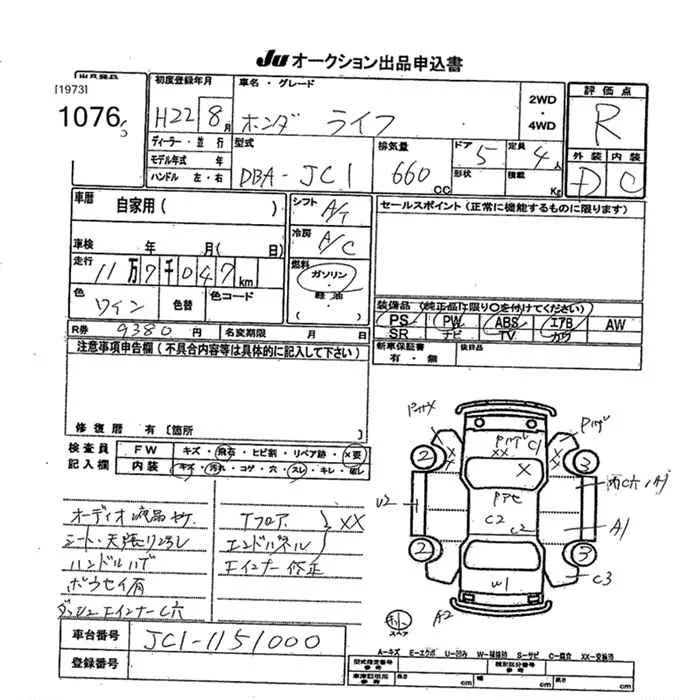 Ju オークション出品申込書
出品番号
[1973]
1076
初度登録年月
H22 8月
車名・グレード
ホンダ ライフ
2WD
・
4WD
評価点
R
ディーラー・並行
モデル年式 年
ハンドル 左・右
型式
DBA-JC1
排気量
660 CC
ドア 5
形状
定員 4人
積載 Kg
外装 内装
D C
車歴
自家用( )
シフト A/T
セールスポイント(正常に機能するものに限ります)
車検 年 月( 日)
冷房 A/C
走行
11万7千047km
燃料
ガソリン
軽油
( )
色
ワイン
色替
色コード
装備品(純正品に限り○を付けてください)
PS PW ABS エアB AW
SR ナビ TV カワ
R券 9380円
名変期限 月 日
新車保証書
有・無
後日品
注意事項申告欄(不具合内容等は具体的に記入して下さい)
修復歴 有〔箇所
検査員
記入欄
FW キズ・飛石・ヒビ割・リペア跡・×要
内装 キズ・汚れ・コゲ・穴・スレ・キレ・破レ
オーディオ液晶ヤケ
シート・天張り汚レ
ハンドルハゲ
ボウセイ有
Tフロア
エンドパネル
XX
Fインナー修正
Pハゲ
Pハゲ C1
XX
X
2
3
U2
C2
C2
A1
2
3
W1
C3
A2
スペア
車台番号
JC1-1151000
登録番号
A-キズ E-エクボ U-凹み W-補修跡 S-サビ C-腐食 XX-交換済
型式指定番号
参考
類別区分番号
参考
車庫証明用
参考
長さ cm
幅 cm
高さ cm